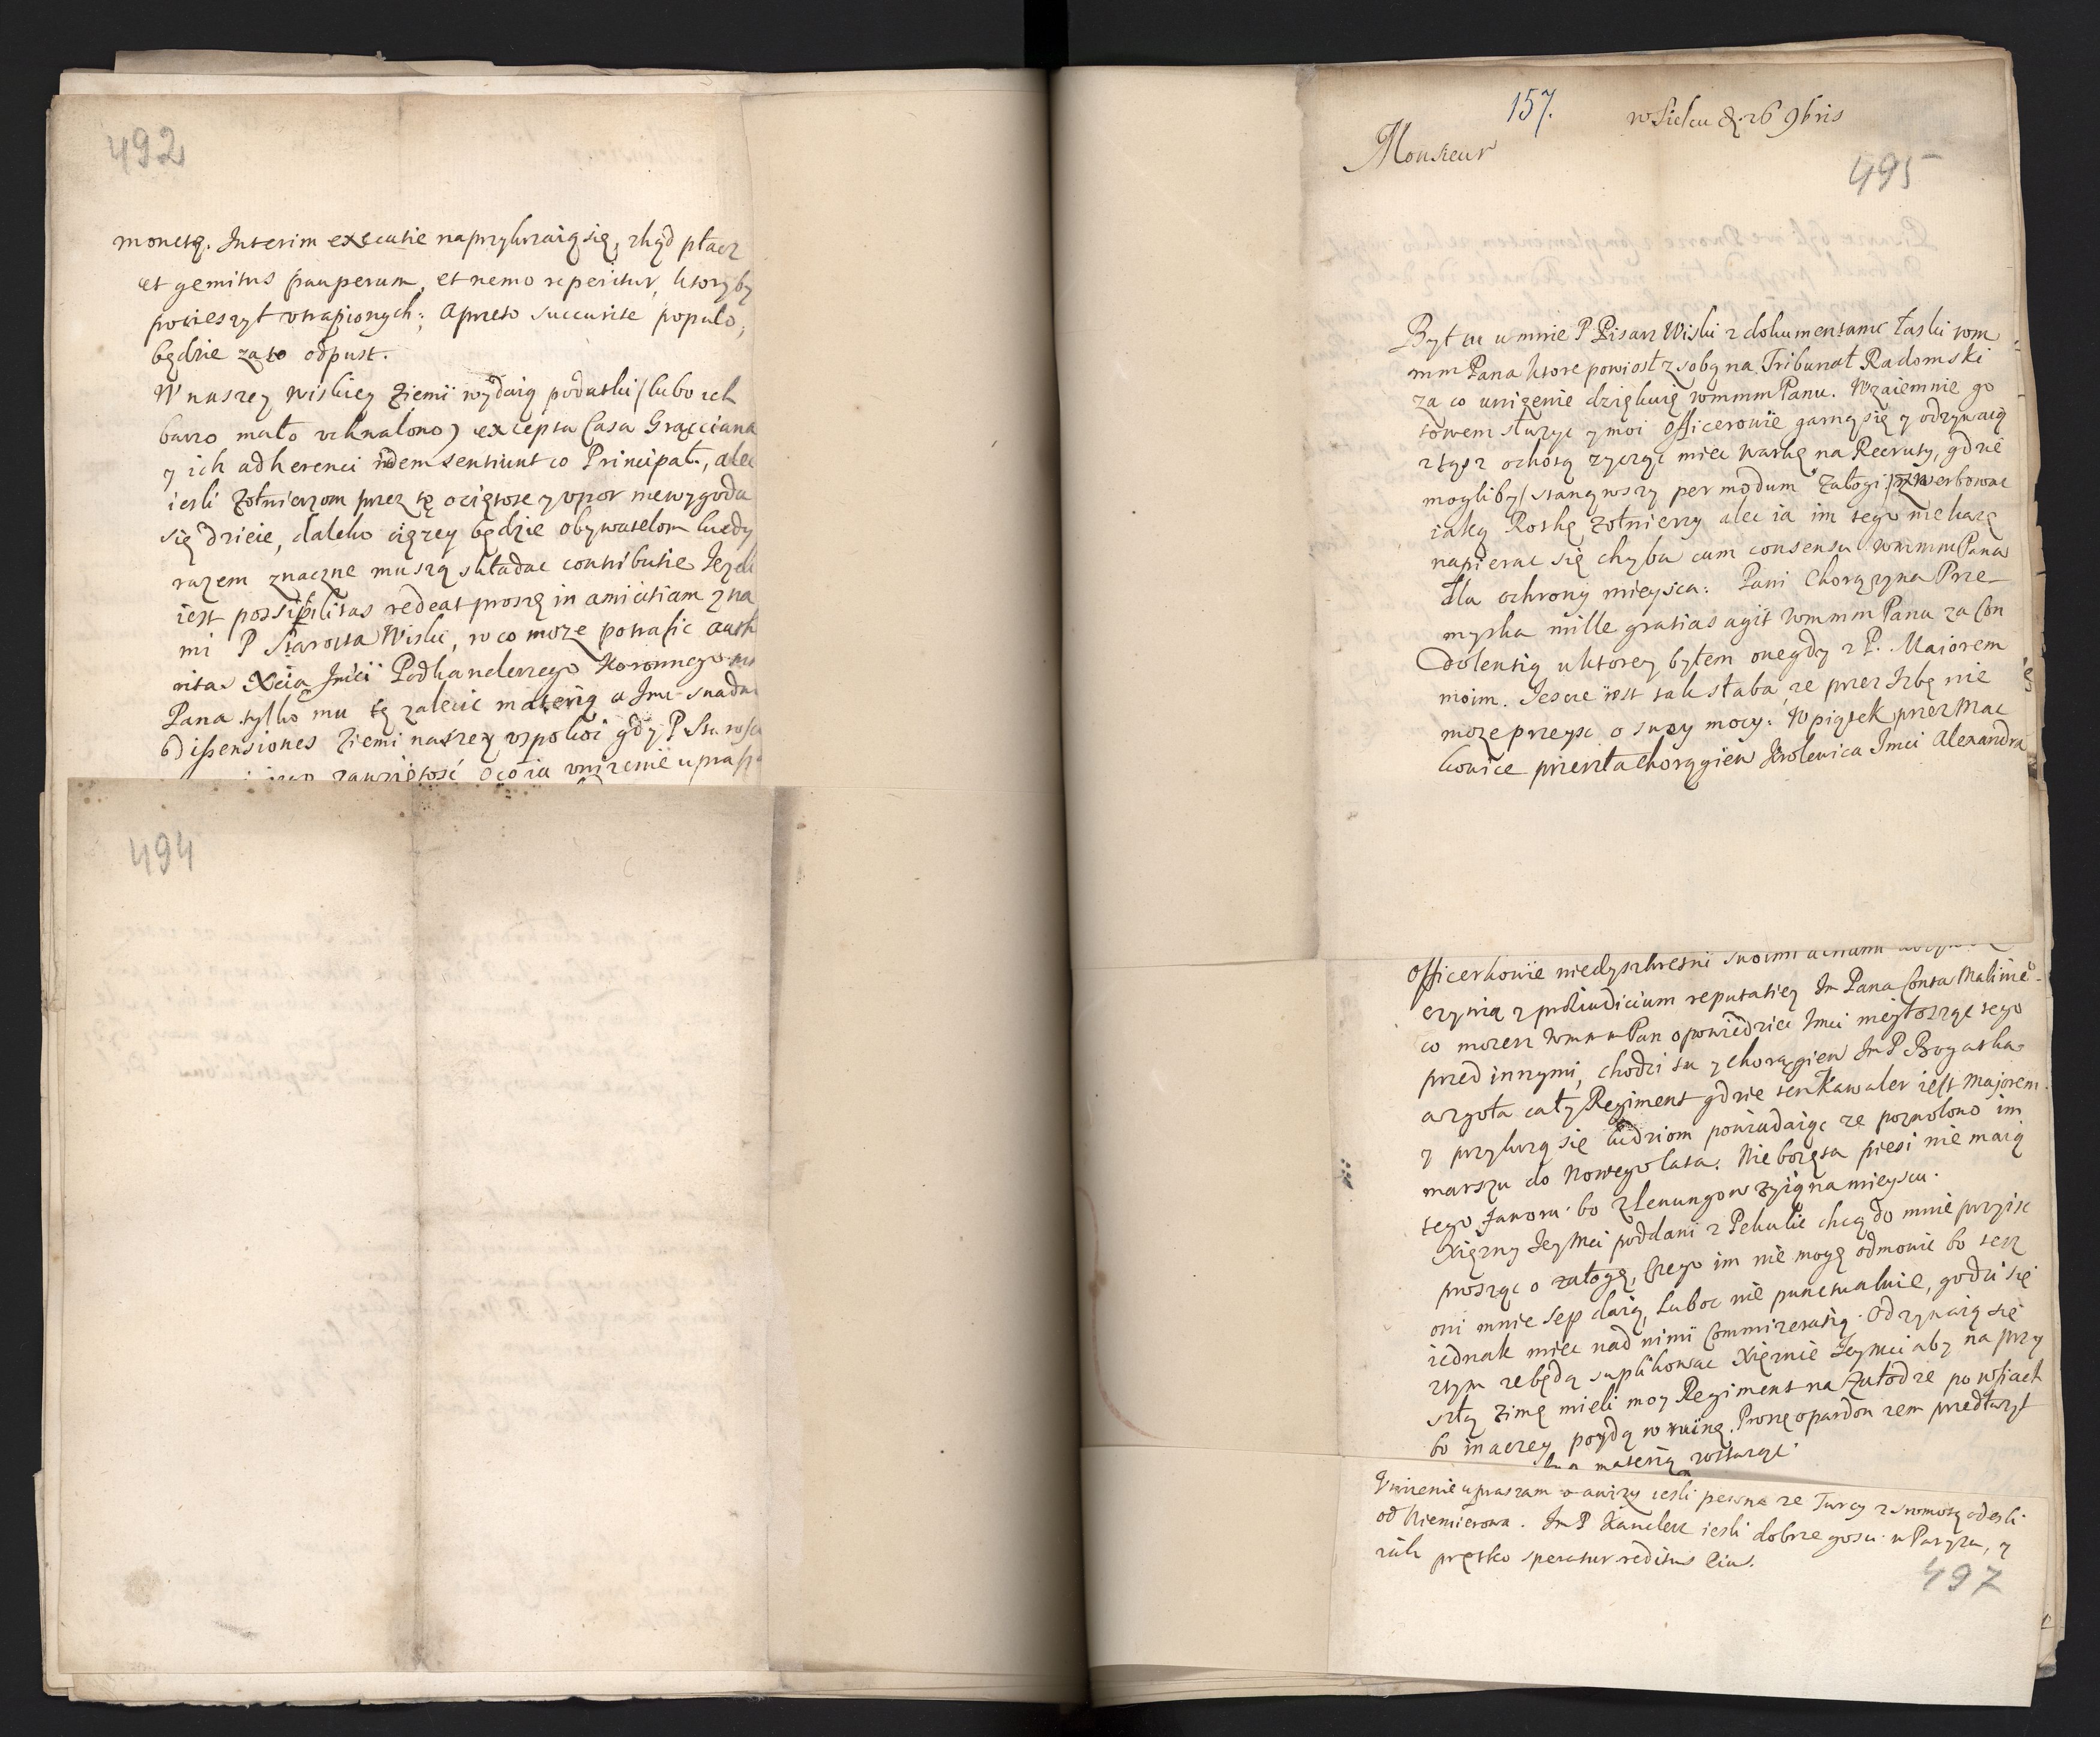 492
monetą. Interim executie naprzykrzaią się, zkąd płacz
et gemitus pauperum, et nemo reperitur, ktoryby
pocieszył utrapionych: a przeto succurite populo,
będzie za to odpust.
W naszey wiskiey Ziemi wydaią podatki (lubo ich
barzo mało uchnalono) excepta Casa Gracciana
y ich adherenci idem sentiunt co Principał., alec
iesli Zołnierzom przez tę ociętosc y upor niewygoda
się dzieie, daleko cięzey będzie obywatelom kiedy
razem znaczne muszą składac contributie Jezeli
iest possibilitas redeat proszę in amicitiam z na
mi P Starosta Wiski, w co moze potrafic auth
ritas Xcia Jmci Podkanclerzego Koronnego
Pana tylko mu tę zalecic materią a Jmc snadno
dissensiones Ziemi naszey uspokoi gdy P Starosta
zawziętosć o co ia unizenie uprasza
494
157.
w Sielcu d. 26 9bris
Monsieur
495
Był tu u mnie P Pisarz Wiski z dokumentami łaski wm
mm Pana ktore powiosł z sobą na Tribunał Radomski
za co unizenie dziękuię wmmm Panu. Wzaiemnie go
towem słuzyc y moi Officerowie garną się y odzywaią
z tąz ochotą zycząc miec Warkę na Recruty, gdzie
mogliby (stanąwszy per modum Załogi) zwerbowac
iaką Roskę Zołnierzy alec ia im tego nie kazę
napierac się chyba cum consensu wmmm Pana
dla ochrony mieysca. Pani Chorązyna Prze-
myska mille gratias agit wmmm Panu za Con
dolentią u ktorey byłem onegdy z P. Maiorem
moim. Jescze iest tak słaba, ze przez Izbę nie
moze przeysc o swey mocy. W piątek przez Mac
kowice przeszła chorągiew Krolewica Jmci Alexandra
Officerkowie niedyszkretni swoimi
czynią z praeiudicium reputatiey Jm Pana Conta Maliniê-
co mozesz wmmm Pan opowiedziec Jmci niegłosząc tego
przed innymi, chodzi tu y chorągiew Jm P Brygatka
a zgoła cały Regiment gdzie ten Kawaler iest Majorem.
y przykrzą się ludziom powiadaiąc ze pozwolono im
marszu do Nowego lata. Nieboręta piesi nie maią
tego favoru bo z lenungow zyią na mieyscu.
Xięzny Jey Mci poddani z Pekulic chcą do mnie przyisc
prosząc o załogę, czego im nie mogę odmowic bo tesz
oni mnie sep daią, Luboc nie punctualnie, godzi się
iednak miec nad nimi Commiseratią. Odzywaią się
z tym ze będą suplikowac Xięznie Jeymci aby na przy
szłą Zimę mieli moy Regiment na Załodze po wsiach
bo inaczey poydą w ruinę. Proszę o pardon zem przedłuzył
materią rostarge.
Unizenie upraszam o awizy iesli pewna ze Turcy z sromotą odeszli
od Niemierowa. Jm P Kanclerz iesli dobrze gosci w Paryzu, y
iak prętko speratur reditus eius.
497